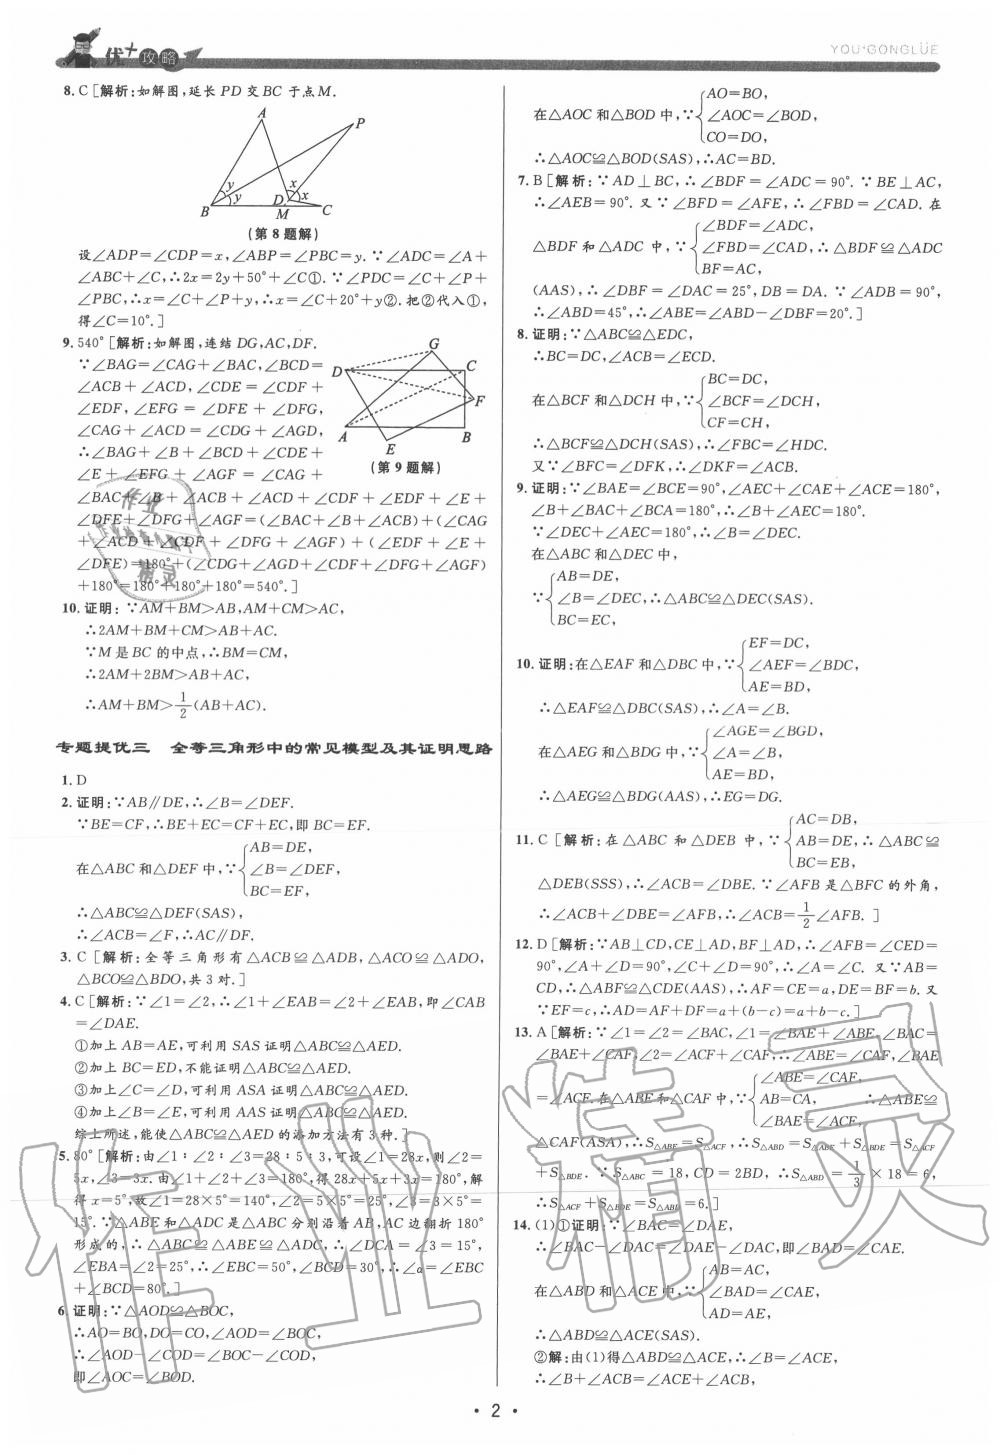 优+攻略
YOU+GONGLÜE
8. C [解析:如解图,延长 PD 交 BC 于点M.
A
P
y
y
x
x
B
D
M
C
(第 8 题解)
设∠ADP=∠CDP=x,∠ABP=∠PBC=y.∵∠ADC=∠A+
∠ABC+∠C,∴2x=2y+50°+∠C①. ∵∠PDC=∠C+∠P+
∠PBC,∴x=∠C+∠P+y,∴x=∠C+20°+y②.把②代入①,
得∠C=10°.]
9. 540° [解析:如解图,连结 DG,AC,DF.
∵∠BAG=∠CAG+∠BAC,∠BCD=
∠ACB+∠ACD,∠CDE=∠CDF+
∠EDF,∠EFG=∠DFE+∠DFG,
∠CAG+∠ACD=∠CDG+∠AGD,
∴∠BAG+∠B+∠BCD+∠CDE+
∠E+∠EFG+∠AGF=∠CAG+
G
D
C
F
A
B
E
(第 9 题解)
∠BAC+∠B+∠ACB+∠ACD+∠CDF+∠EDF+∠E+
∠DFE+∠DFG+∠AGF=(∠BAC+∠B+∠ACB)+(∠CAG
+∠ACD+∠CDF+∠DFG+∠AGF)+(∠EDF+∠E+
∠DFE)=180°+(∠CDG+∠AGD+∠CDF+∠DFG+∠AGF)
+180°=180°+180°+180°=540°.]
10. 证明: ∵AM+BM>AB,AM+CM>AC,
∴2AM+BM+CM>AB+AC.
∵M 是 BC 的中点,∴BM=CM,
∴2AM+2BM>AB+AC,
∴AM+BM>1/2(AB+AC).
专题提优三 全等三角形中的常见模型及其证明思路
1. D
2. 证明:∵AB∥DE,∴∠B=∠DEF.
∵BE=CF,∴BE+EC=CF+EC,即 BC=EF.
AB=DE,
在△ABC 和△DEF 中,∵{∠B=∠DEF,
BC=EF,
∴△ABC≌△DEF(SAS),
∴∠ACB=∠F,∴AC∥DF.
3. C [解析: 全等三角形有△ACB≌△ADB,△ACO≌△ADO,
△BCO≌△BDO,共 3 对.]
4. C [解析:∵∠1=∠2,∴∠1+∠EAB=∠2+∠EAB,即∠CAB
=∠DAE.
①加上 AB=AE,可利用 SAS 证明△ABC≌△AED.
②加上 BC=ED,不能证明△ABC≌△AED.
③加上∠C=∠D,可利用 ASA 证明△ABC≌△AED.
④加上∠B=∠E,可利用 AAS 证明△ABC≌△AED.
综上所述,能使△ABC≌△AED 的添加方法有 3 种.]
5. 80° [解析:由∠1∶∠2∶∠3=28∶5∶3,可设∠1=28x,则∠2=
5x,∠3=3x.由∠1+∠2+∠3=180°,得 28x+5x+3x=180°,解
得 x=5°,故∠1=28×5°=140°,∠2=5×5°=25°,∠3=3×5°=
15°. ∵△ABE 和△ADC 是△ABC 分别沿着 AB,AC 边翻折 180°
形成的,∴△ABC≌△ABE≌△ADC,∴∠DCA=∠3=15°,
∠EBA=∠2=25°,∴∠EBC=50°,∠BCD=30°,∴∠α=∠EBC
+∠BCD=80°.]
6. 证明:∵△AOD≌△BOC,
∴AO=BO,DO=CO,∠AOD=∠BOC,
∴∠AOD-∠COD=∠BOC-∠COD,
即∠AOC=∠BOD.
AO=BO,
在△AOC 和△BOD 中,∵{∠AOC=∠BOD,
CO=DO,
∴△AOC≌△BOD(SAS),∴AC=BD.
7. B [解析:∵AD⊥BC,∴∠BDF=∠ADC=90°. ∵BE⊥AC,
∴∠AEB=90°. 又∵∠BFD=∠AFE,∴∠FBD=∠CAD. 在
∠BDF=∠ADC,
△BDF 和△ADC 中,∵{∠FBD=∠CAD,∴△BDF≌△ADC
BF=AC,
(AAS),∴∠DBF=∠DAC=25°,DB=DA. ∵∠ADB=90°,
∴∠ABD=45°,∴∠ABE=∠ABD-∠DBF=20°.]
8. 证明:∵△ABC≌△EDC,
∴BC=DC,∠ACB=∠ECD.
BC=DC,
在△BCF 和△DCH 中,∵{∠BCF=∠DCH,
CF=CH,
∴△BCF≌△DCH(SAS),∴∠FBC=∠HDC.
又∵∠BFC=∠DFK,∴∠DKF=∠ACB.
9. 证明:∵∠BAE=∠BCE=90°,∠AEC+∠CAE+∠ACE=180°,
∠B+∠BAC+∠BCA=180°,∴∠B+∠AEC=180°.
∵∠DEC+∠AEC=180°,∴∠B=∠DEC.
在△ABC 和△DEC 中,
AB=DE,
∵{∠B=∠DEC,∴△ABC≌△DEC(SAS).
BC=EC,
EF=DC,
10. 证明:在△EAF 和△DBC 中,∵{∠AEF=∠BDC,
AE=BD,
∴△EAF≌△DBC(SAS),∴∠A=∠B.
∠AGE=∠BGD,
在△AEG 和△BDG 中,∵{∠A=∠B,
AE=BD,
∴△AEG≌△BDG(AAS),∴EG=DG.
AC=DB,
11. C [解析:在△ABC 和△DEB 中,∵{AB=DE,∴△ABC≌
BC=EB,
△DEB(SSS),∴∠ACB=∠DBE. ∵∠AFB 是△BFC 的外角,
∴∠ACB+∠DBE=∠AFB,∴∠ACB=1/2∠AFB.]
12. D [解析:∵AB⊥CD,CE⊥AD,BF⊥AD,∴∠AFB=∠CED=
90°,∠A+∠D=90°,∠C+∠D=90°,∴∠A=∠C. 又∵AB=
CD,∴△ABF≌△CDE(AAS),∴AF=CE=a,DE=BF=b. 又
∵EF=c,∴AD=AF+DF=a+(b-c)=a+b-c.]
13. A [解析:∵∠1=∠2=∠BAC,∠1=∠BAE+∠ABE,∠BAC=
∠BAE+∠CAF,∠2=∠ACF+∠CAF,∴∠ABE=∠CAF,∠BAE
∠ABE=∠CAF,
=∠ACF.在△ABE 和△CAF 中,∵{AB=CA, ∴△ABE≌
∠BAE=∠ACF,
△CAF(ASA),∴S△ABE=S△ACF,∴S△ABD=S△ABE+S△BDE=S△ACF
+S△BDE. ∵S△ABC=18,CD=2BD,∴S△ABD=1/3×18=6,
∴S△ACF+S△BDE=S△ABD=6.]
14. (1)①证明:∵∠BAC=∠DAE,
∴∠BAC-∠DAC=∠DAE-∠DAC,即∠BAD=∠CAE.
AB=AC,
在△ABD 和△ACE 中,∵{∠BAD=∠CAE,
AD=AE,
∴△ABD≌△ACE(SAS).
②解:由(1)得△ABD≌△ACE,∴∠B=∠ACE,
∴∠B+∠ACB=∠ACE+∠ACB,
· 2 ·
作业精灵